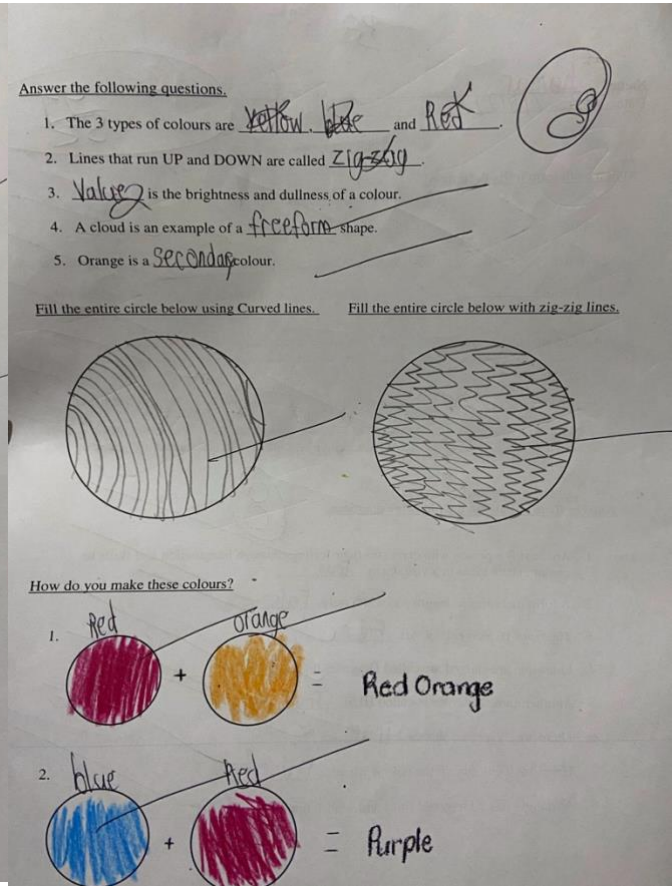 Answer the following questions.
1. The 3 types of colours are yellow, blue and Red.
2. Lines that run UP and DOWN are called zig-zag.
3. Value is the brightness and dullness of a colour.
4. A cloud is an example of a freeform shape.
5. Orange is a Secondary colour.
Fill the entire circle below using Curved lines. Fill the entire circle below with zig-zig lines.
How do you make these colours?
Red orange
1. + = Red Orange
2. blue Red
+ = Purple